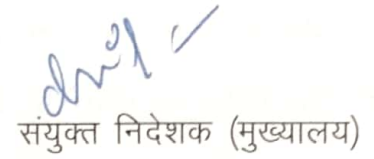 संयुक्त निदेशक (मुख्यालय)